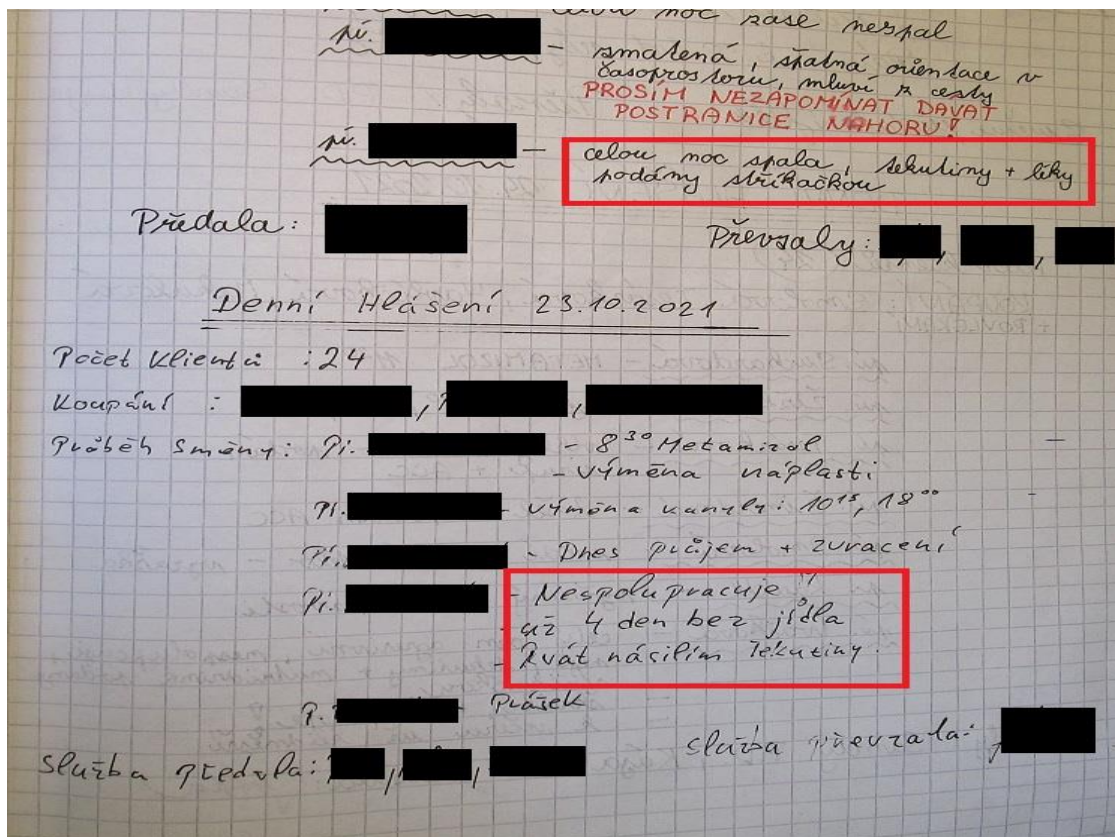 celou noc zase nespal
pí. – zmatená, špatná orientace v
časoprostoru, mluví z cesty
PROSÍM NEZAPOMÍNAT DÁVAT
POSTRANICE NAHORU!
pí. – celou noc spala, tekutiny + léky
podány stříkačkou
Předala: Převzaly: , ,
Denní Hlášení 23.10.2021
Počet klientů : 24
Koupání : , ,
Průběh směny: Pí. – 8³⁰ Metamizol
– výměna náplasti
Pí. – výměna kanyly: 10¹⁵, 18⁰⁰
Pí. – Dnes průjem + zvracení
Pí. – Nespolupracuje!!
už 4 den bez jídla
– násilím tekutiny.
P. Prášek
služba předala: , , služba převzala: